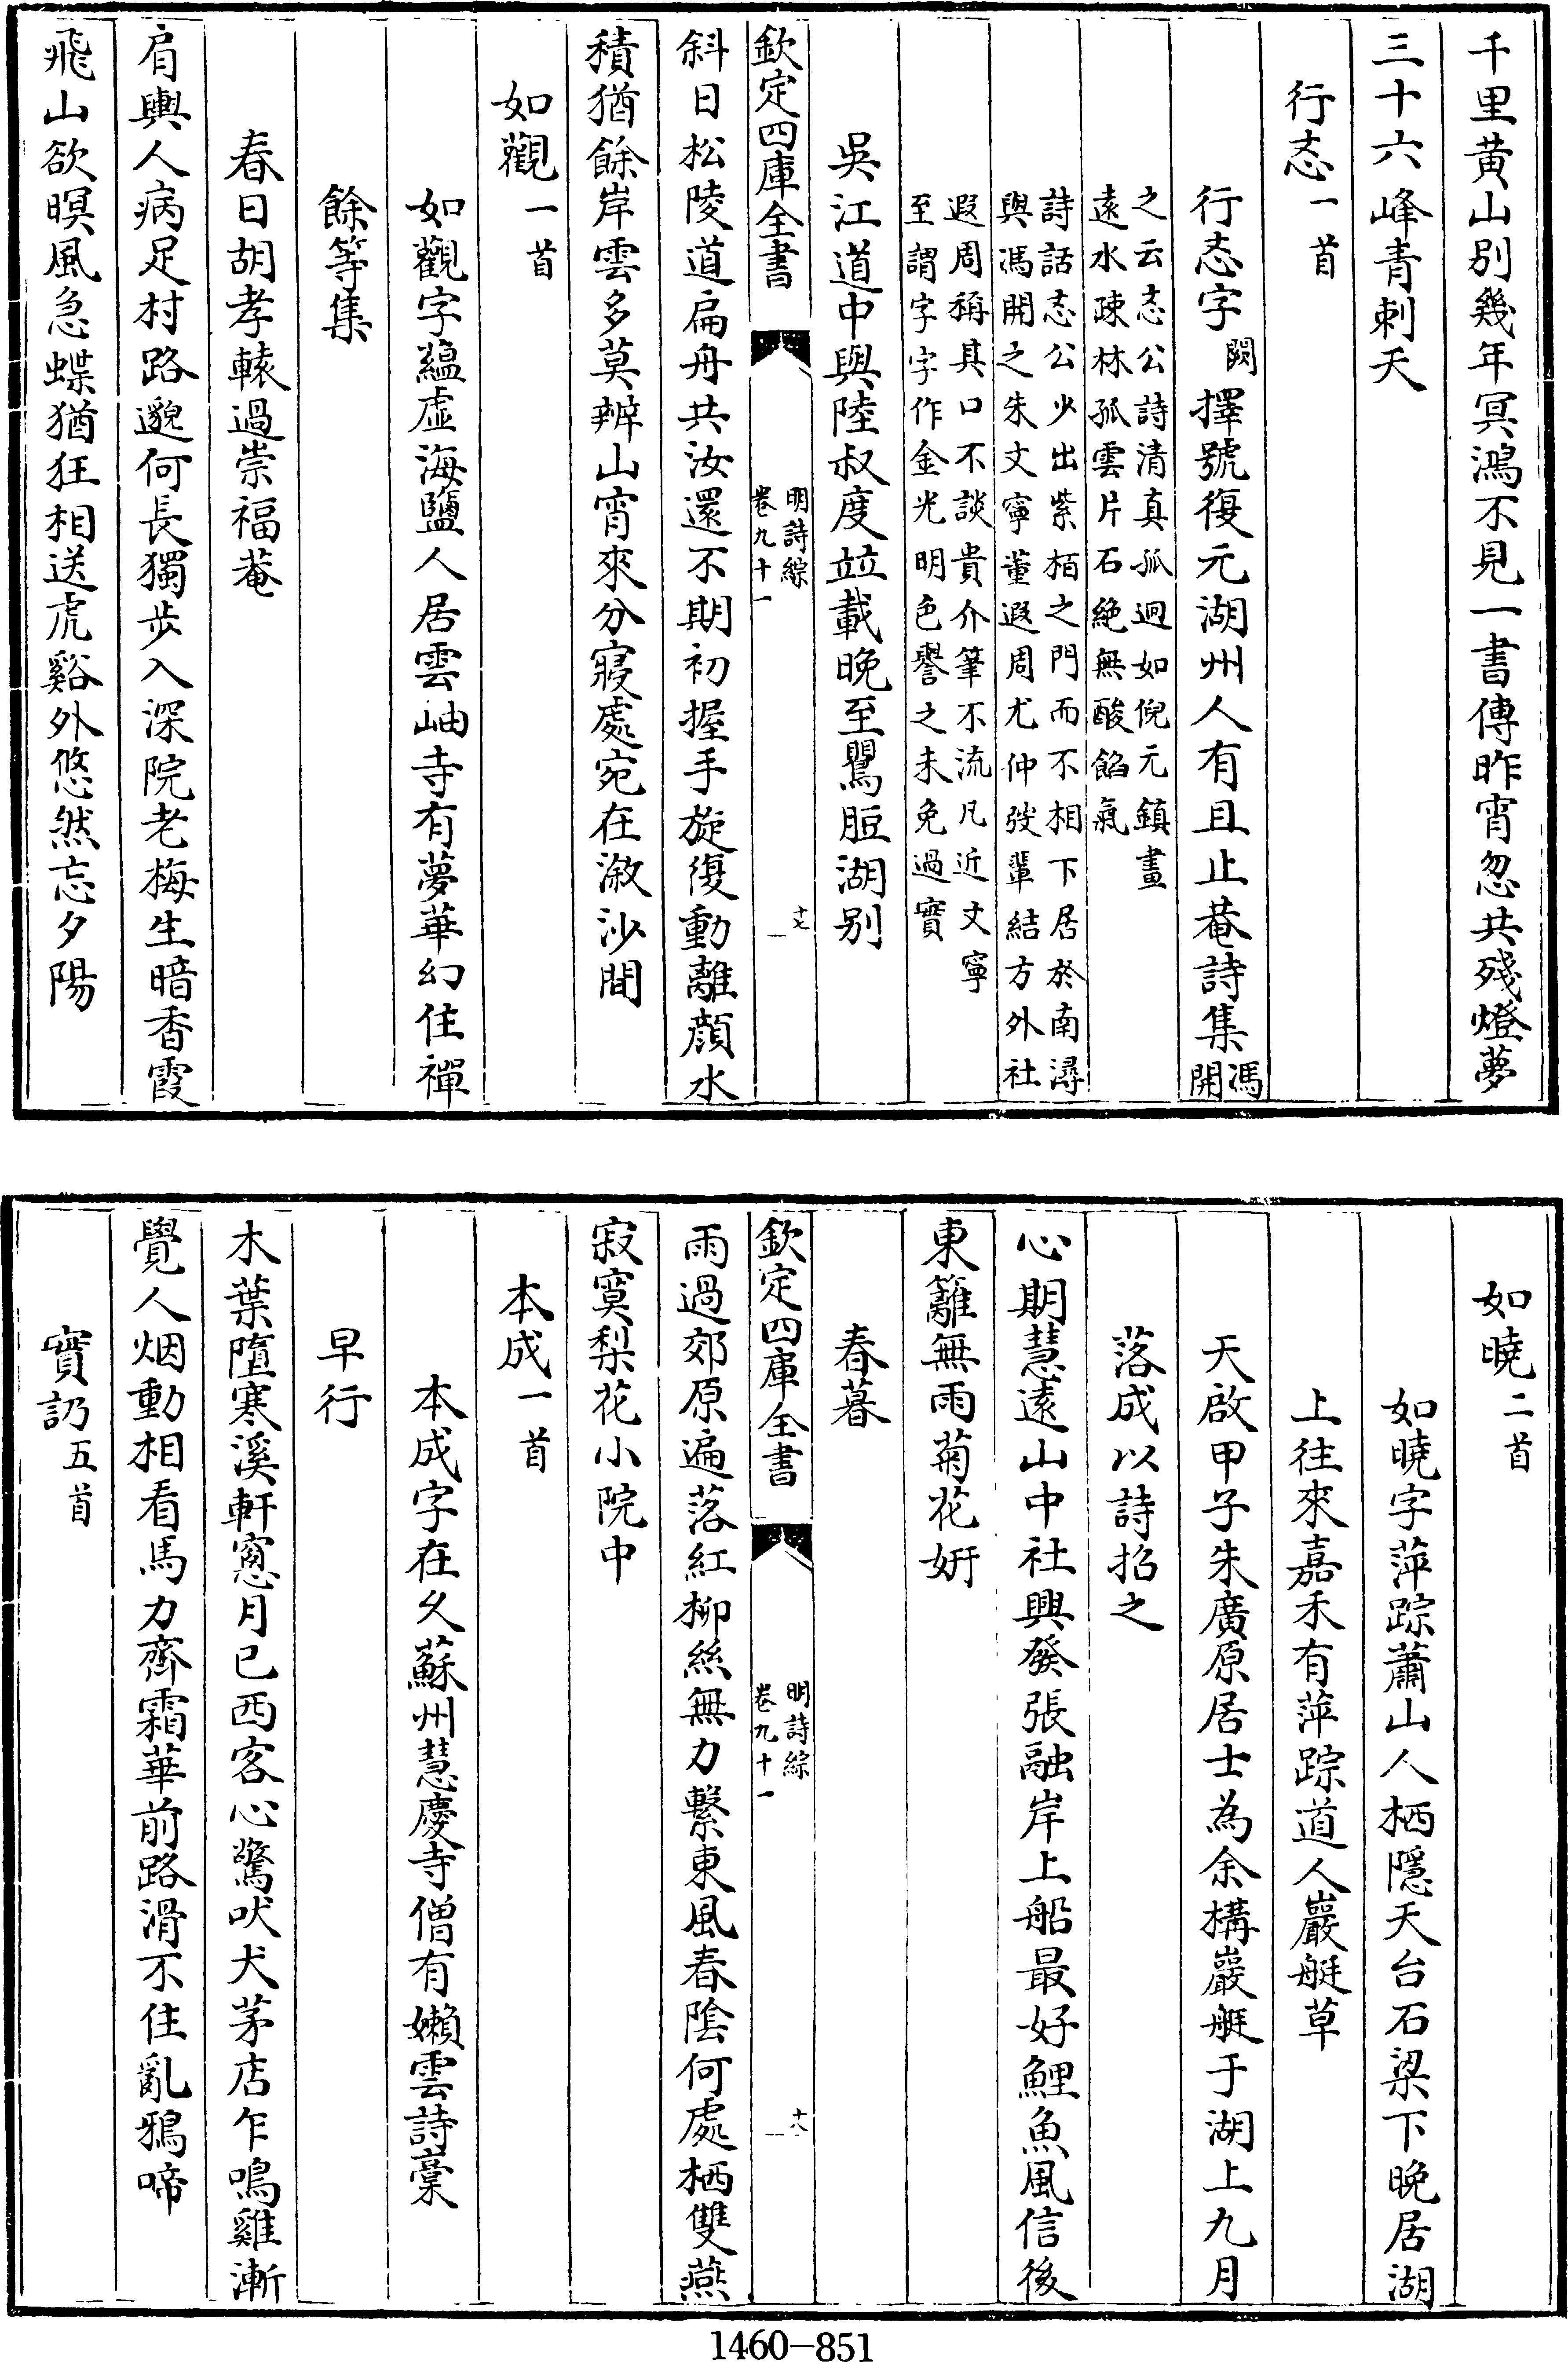 千里黄山别幾年冥鴻不見一書傳昨宵忽共殘燈夢
三十六峰青刺天
行忞一首
行忞字闕擇號復元湖州人有且止菴詩集馮開
之云忞公詩清真孤迥如倪元鎮畫
遠水疎林孤雲片石絶無酸餡氣
詩話忞公少出紫栢之門而不相下居於南潯
與馮開之朱文寧董遐周尤仲弢輩結方外社
遐周稱其口不談貴介筆不流凡近文寧
至謂字字作金光明色譽之未免過實
吳江道中與陸叔度竝載晚至鸎脰湖别
欽定四庫全書
明詩綜
卷九十一
十七
斜日松陵道扁舟共汝還不期初握手旋復動離顔水
積猶餘岸雲多莫辨山宵來分寢處宛在漵沙間
如觀一首
如觀字蘊虚海鹽人居雲岫寺有夢華幻住禪
餘等集
春日胡孝轅過崇福菴
肩輿人病足村路邈何長獨步入深院老梅生暗香霞
飛山欲暝風急蝶猶狂相送虎谿外悠然忘夕陽
如曉二首
如曉字萍踪蕭山人栖隱天台石梁下晚居湖
上往來嘉禾有萍踪道人巖艇草
天啟甲子朱廣原居士為余構巖艇于湖上九月
落成以詩招之
心期慧遠山中社興發張融岸上船最好鯉魚風信後
東籬無雨菊花妍
春暮
欽定四庫全書
明詩綜
卷九十一
十八
雨過郊原遍落紅柳絲無力繫東風春陰何處栖雙燕
寂寞梨花小院中
本成一首
本成字在久蘇州慧慶寺僧有嬾雲詩稾
早行
木葉墮寒溪軒窻月已西客心驚吠犬茅店乍鳴雞漸
覺人烟動相看馬力齊霜華前路滑不住亂鴉啼
實訒五首
1460-851